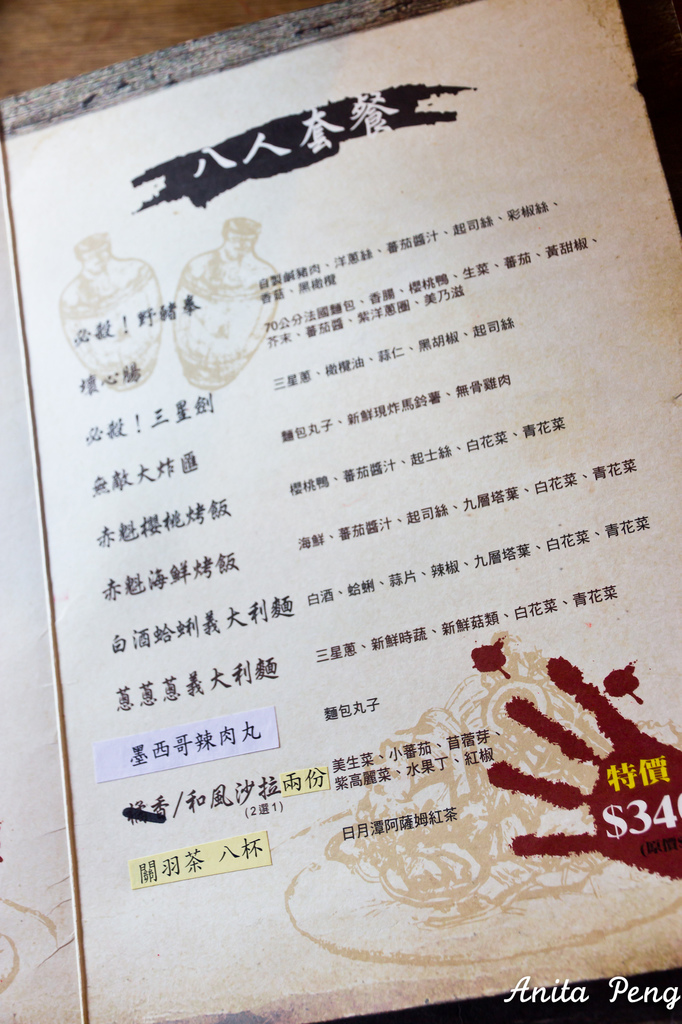 八人套餐
必殺！野豬拳
自製鹹豬肉、洋蔥絲、蕃茄醬汁、起司絲、彩椒絲、
香菇、黑橄欖
壞心腸
70公分法國麵包、香腸、櫻桃鴨、生菜、蕃茄、黃甜椒、
芥末、蕃茄醬、紫洋蔥圈、美乃滋
必殺！三星劍
三星蔥、橄欖油、蒜仁、黑胡椒、起司絲
無敵大炸匯
麵包丸子、新鮮現炸馬鈴薯、無骨雞肉
赤魁櫻桃烤飯
櫻桃鴨、蕃茄醬汁、起士絲、白花菜、青花菜
赤魁海鮮烤飯
海鮮、蕃茄醬汁、起司絲、九層塔葉、白花菜、青花菜
白酒蛤蜊義大利麵
白酒、蛤蜊、蒜片、辣椒、九層塔葉、白花菜、青花菜
蔥蔥蔥義大利麵
三星蔥、新鮮時蔬、新鮮菇類、白花菜、青花菜
墨西哥辣肉丸
麵包丸子
香/和風沙拉兩份
(2選1)
美生菜、小蕃茄、苜蓿芽、
紫高麗菜、水果丁、紅椒
關羽茶 八杯
日月潭阿薩姆紅茶
特價
$340
(原價$
Anita Peng